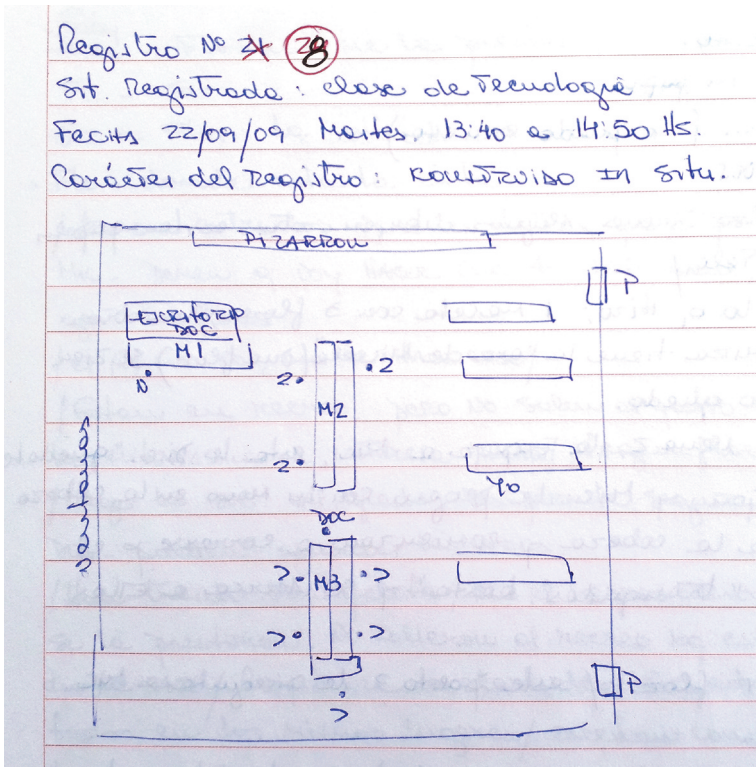 Registro Nº 21 28
Sit. Registrada: clase de Tecnología
Fecha 22/09/09 Martes. 13:40 a 14:50 Hs.
Carácter del registro: construido in situ.
PIZARRON
P
ESCRITORIO
DOC
M1
N
2 2
M2
2
Yo
DOC
M3
P